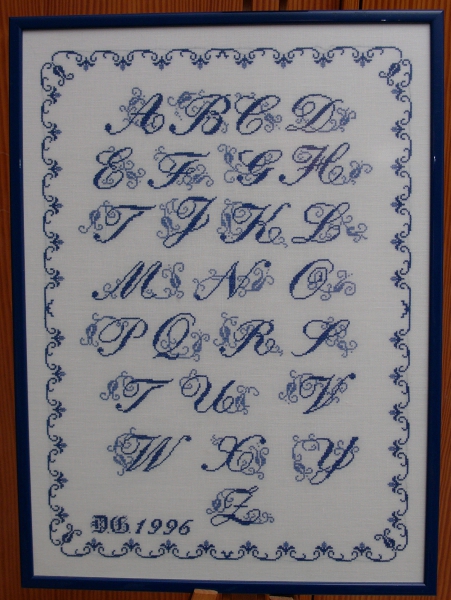 A B C D
E F G H
I J K L
M N O
P Q R S
T U V
W X Y
Z
D.G 1996